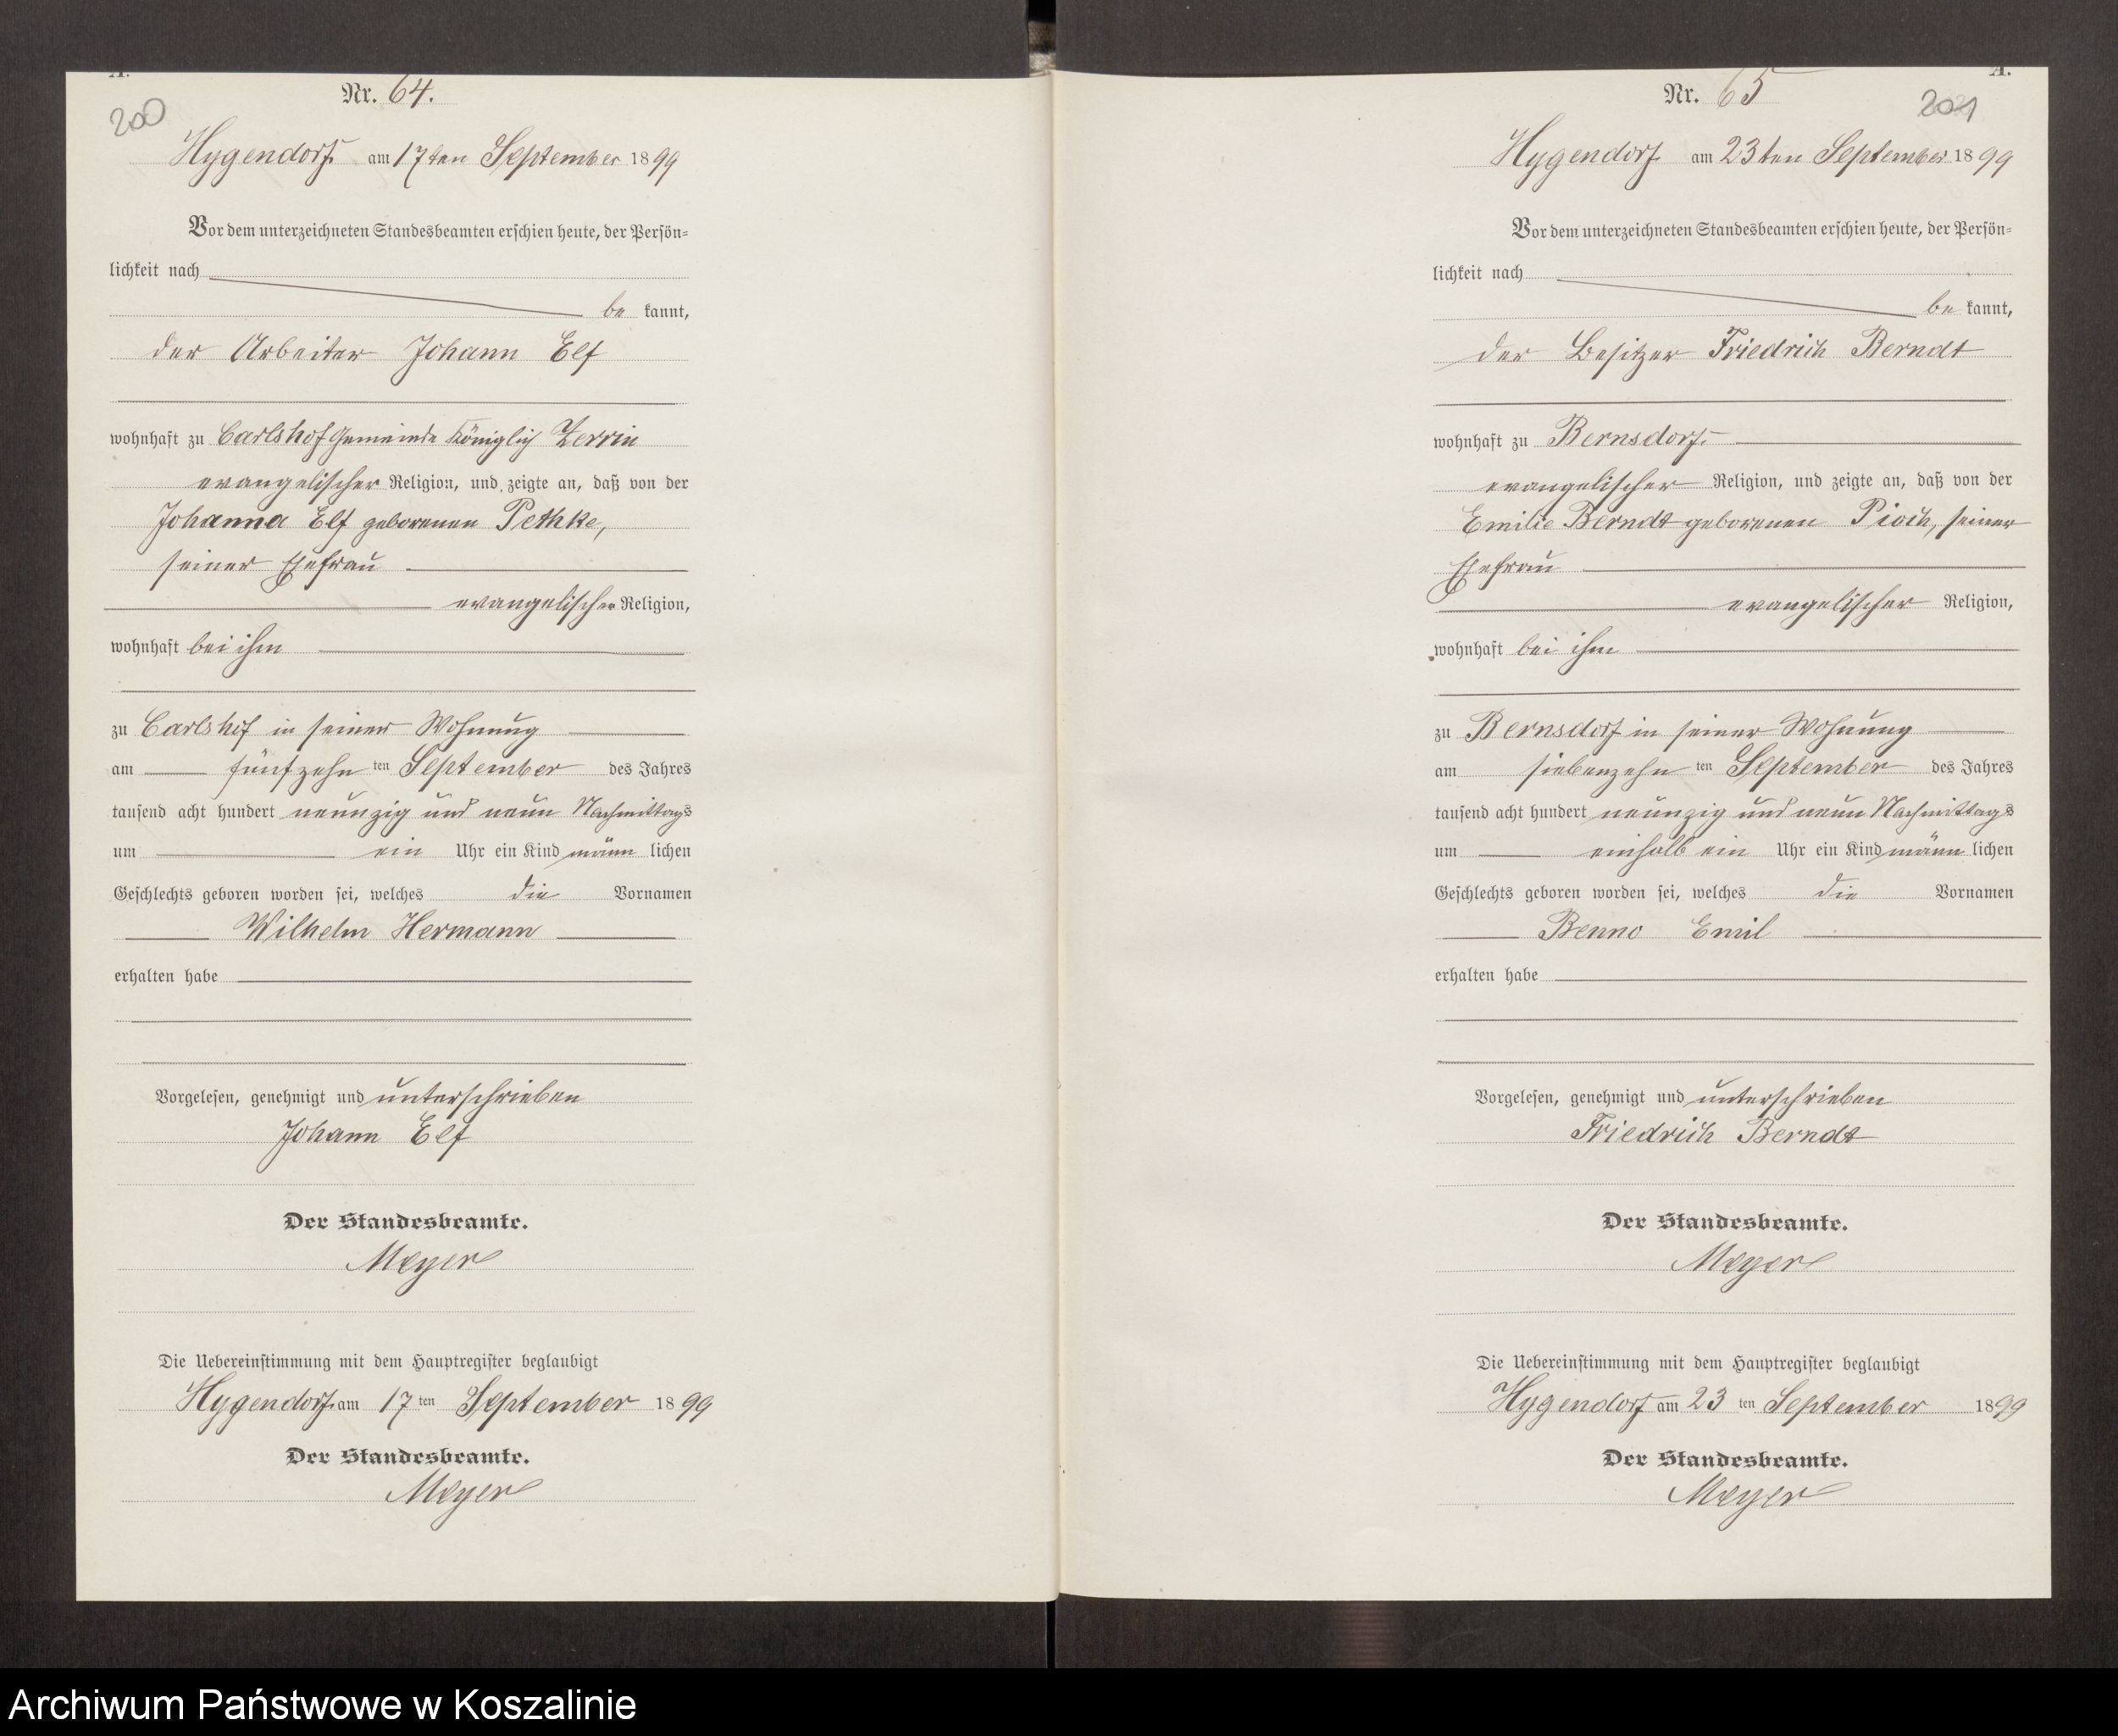 A.
Nr. 64.
200
Hygendorf am 17ten September 1899
Vor dem unterzeichneten Standesbeamten erschien heute, der Persön-
lichkeit nach
be kannt,
der Arbeiter Johann Elf
wohnhaft zu Carlshof Gemeinde Königlich Zerrin
evangelischer Religion, und zeigte an, daß von der
Johanna Elf geborenen Pethke,
seiner Ehefrau
evangelischer Religion,
wohnhaft bei ihm
zu Carlshof in seiner Wohnung
am fünfzehn ten September des Jahres
tausend acht hundert neunzig und neun Nachmittags
um ein Uhr ein Kind männ lichen
Geschlechts geboren worden sei, welches die Vornamen
Wilhelm Hermann
erhalten habe
Vorgelesen, genehmigt und unterschrieben
Johann Elf
Der Standesbeamte.
Meyer
Die Uebereinstimmung mit dem Hauptregister beglaubigt
Hygendorf am 17 ten September 1899
Der Standesbeamte.
Meyer
A.
Nr. 65
201
Hygendorf am 23ten September 1899
Vor dem unterzeichneten Standesbeamten erschien heute, der Persön-
lichkeit nach
be kannt,
der Besitzer Friedrich Berndt
wohnhaft zu Bernsdorf
evangelischer Religion, und zeigte an, daß von der
Emilie Berndt geborenen Pioch, seiner
Ehefrau
evangelischer Religion,
wohnhaft bei ihm
zu Bernsdorf in seiner Wohnung
am siebenzehn ten September des Jahres
tausend acht hundert neunzig und neun Nachmittags
um einhalb ein Uhr ein Kind männ lichen
Geschlechts geboren worden sei, welches die Vornamen
Benno Emil
erhalten habe
Vorgelesen, genehmigt und unterschrieben
Friedrich Berndt
Der Standesbeamte.
Meyer
Die Uebereinstimmung mit dem Hauptregister beglaubigt
Hygendorf am 23 ten September 1899
Der Standesbeamte.
Meyer
Archiwum Państwowe w Koszalinie